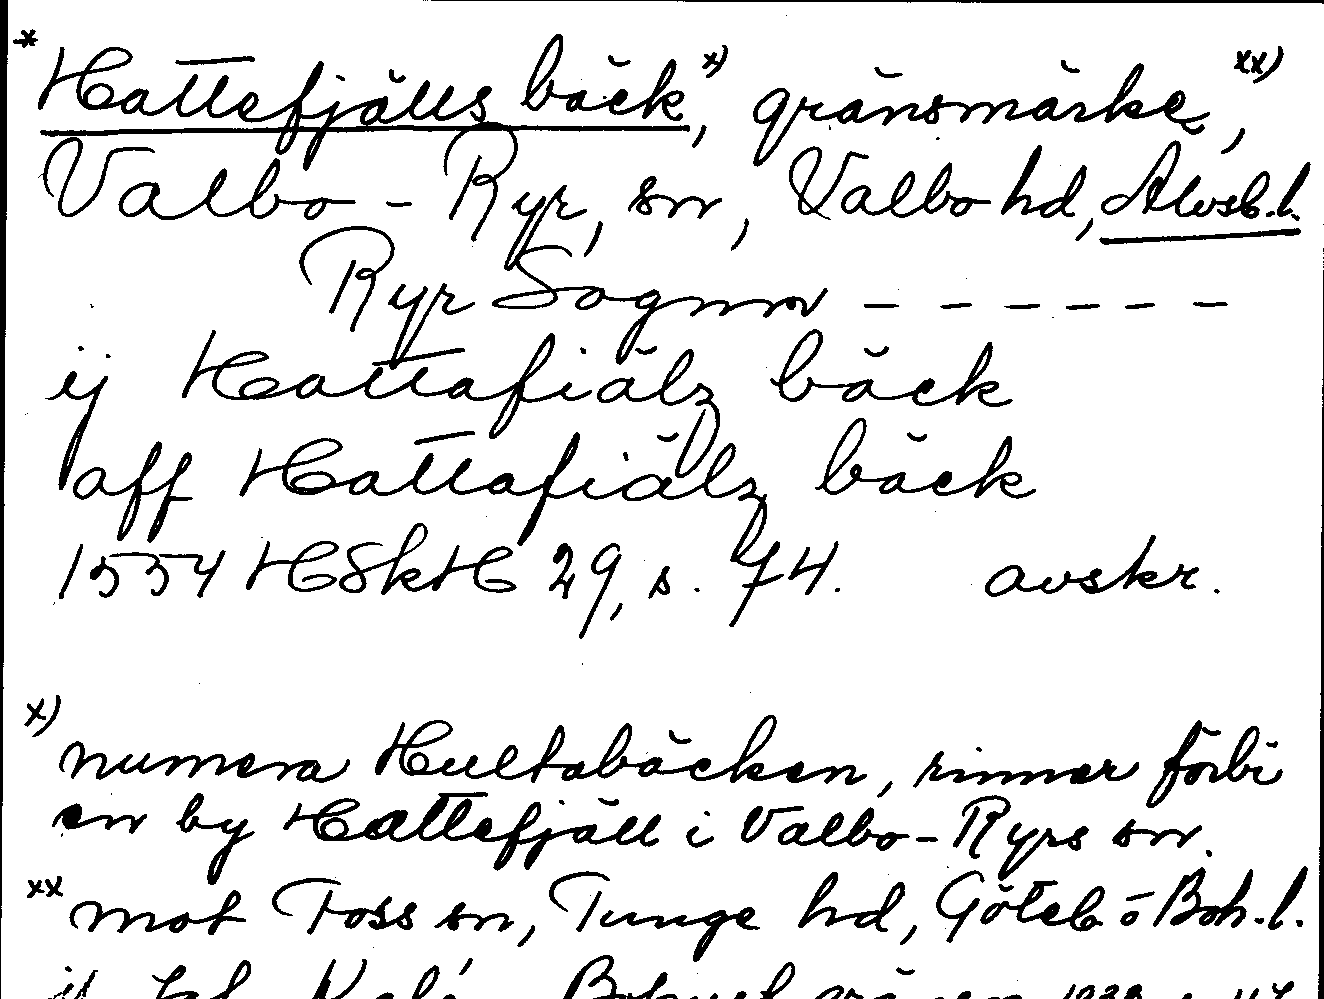 * Hattefjälls bäck,x) gränsmärke,xx)
Valbo-Ryr, sn, Valbo hd, Älvsb.l.
Ryr Sognn - - - - - -
ij Hattafiälz bäck
aff Hattafiälz bäck
1554 HSkH 29, s. 74. avskr.
x) numera Hultabäcken, rinner förbi
en by Hattefjäll i Valbo-Ryrs sn.
xx mot Foss sn, Tunge hd, Göteb o Boh.l.